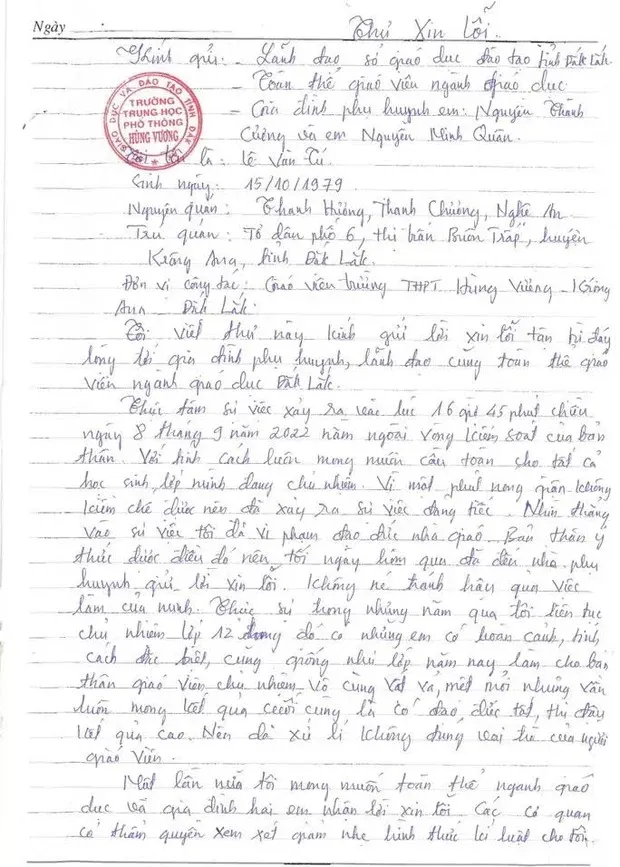 Ngày
Thư Xin Lỗi.
Kính gửi: - Lãnh đạo sở giáo dục đào tạo tỉnh Đắk Lắk.
- Toàn thể giáo viên ngành giáo dục
- Gia đình phụ huynh em: Nguyễn Thanh
Cường và em Nguyễn Minh Quân.
SỞ GIÁO DỤC VÀ ĐÀO TẠO TỈNH ĐẮK
TRƯỜNG
TRUNG HỌC
PHỔ THÔNG
HÙNG VƯƠNG
Tôi tên là: Lê Văn Tú
Sinh ngày: 15/10/1979
Nguyên quán: Thanh Hưởng, Thanh Chương, Nghệ An
Trú quán: Tổ dân phố 6, thị trấn Buôn Trấp, huyện
Krông Ana, tỉnh Đắk Lắk.
Đơn vị công tác: Giáo viên trường THPT Hùng Vương - Krông
Ana - Đắk Lắk.
Tôi viết thư này kính gửi lời xin lỗi tận tự đáy
lòng tới gia đình phụ huynh, lãnh đạo cùng toàn thể giáo
viên ngành giáo dục Đắk Lắk.
Thực tâm sự việc xảy ra vào lúc 16 giờ 45 phút chiều
ngày 8 tháng 9 năm 2022 nằm ngoài vòng kiểm soát của bản
thân. Với tính cách luôn mong muốn cầu toàn cho tất cả
học sinh lớp mình đang chủ nhiệm. Vì một phút nóng giận không
kiềm chế được nên đã xảy ra sự việc đáng tiếc. Nhìn thẳng
vào sự việc tôi đã vi phạm đạo đức nhà giáo. Bản thân ý
thức được điều đó nên tối ngày hôm qua đã đến nhà phụ
huynh gửi lời xin lỗi. Không né tránh hậu quả việc
làm của mình. Thực sự trong những năm qua tôi liên tục
chủ nhiệm lớp 12 trong đó có những em có hoàn cảnh, tính
cách đặc biệt, cũng giống như lớp năm nay làm cho bản
thân giáo viên chủ nhiệm vô cùng vất vả, mệt mỏi nhưng vẫn
luôn mong kết quả cuối cùng là có đạo đức tốt, thi đậu
kết quả cao. Nên đã xử lí không đúng vai trò của người
giáo viên.
Một lần nữa tôi mong muốn toàn thể ngành giáo
dục và gia đình hai em nhận lời xin lỗi. Các cơ quan
có thẩm quyền xem xét giảm nhẹ hình thức kỉ luật cho tôi.